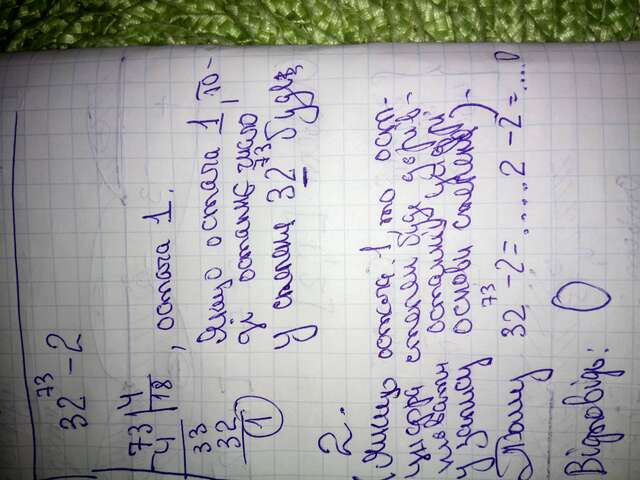 32⁷³-2
73 | 4
4 | 18 , остача 1.
33
32
1
Якщо остача 1, то-
ді останнє число
у степені 32⁷³ буде
2.
(Якщо остача 1, то ост.
цифра степеня буде дорів-
нювати останній цифрі
у запису основи степеня)
Тому 32⁷³-2=.....2-2=....0
Відповідь: 0